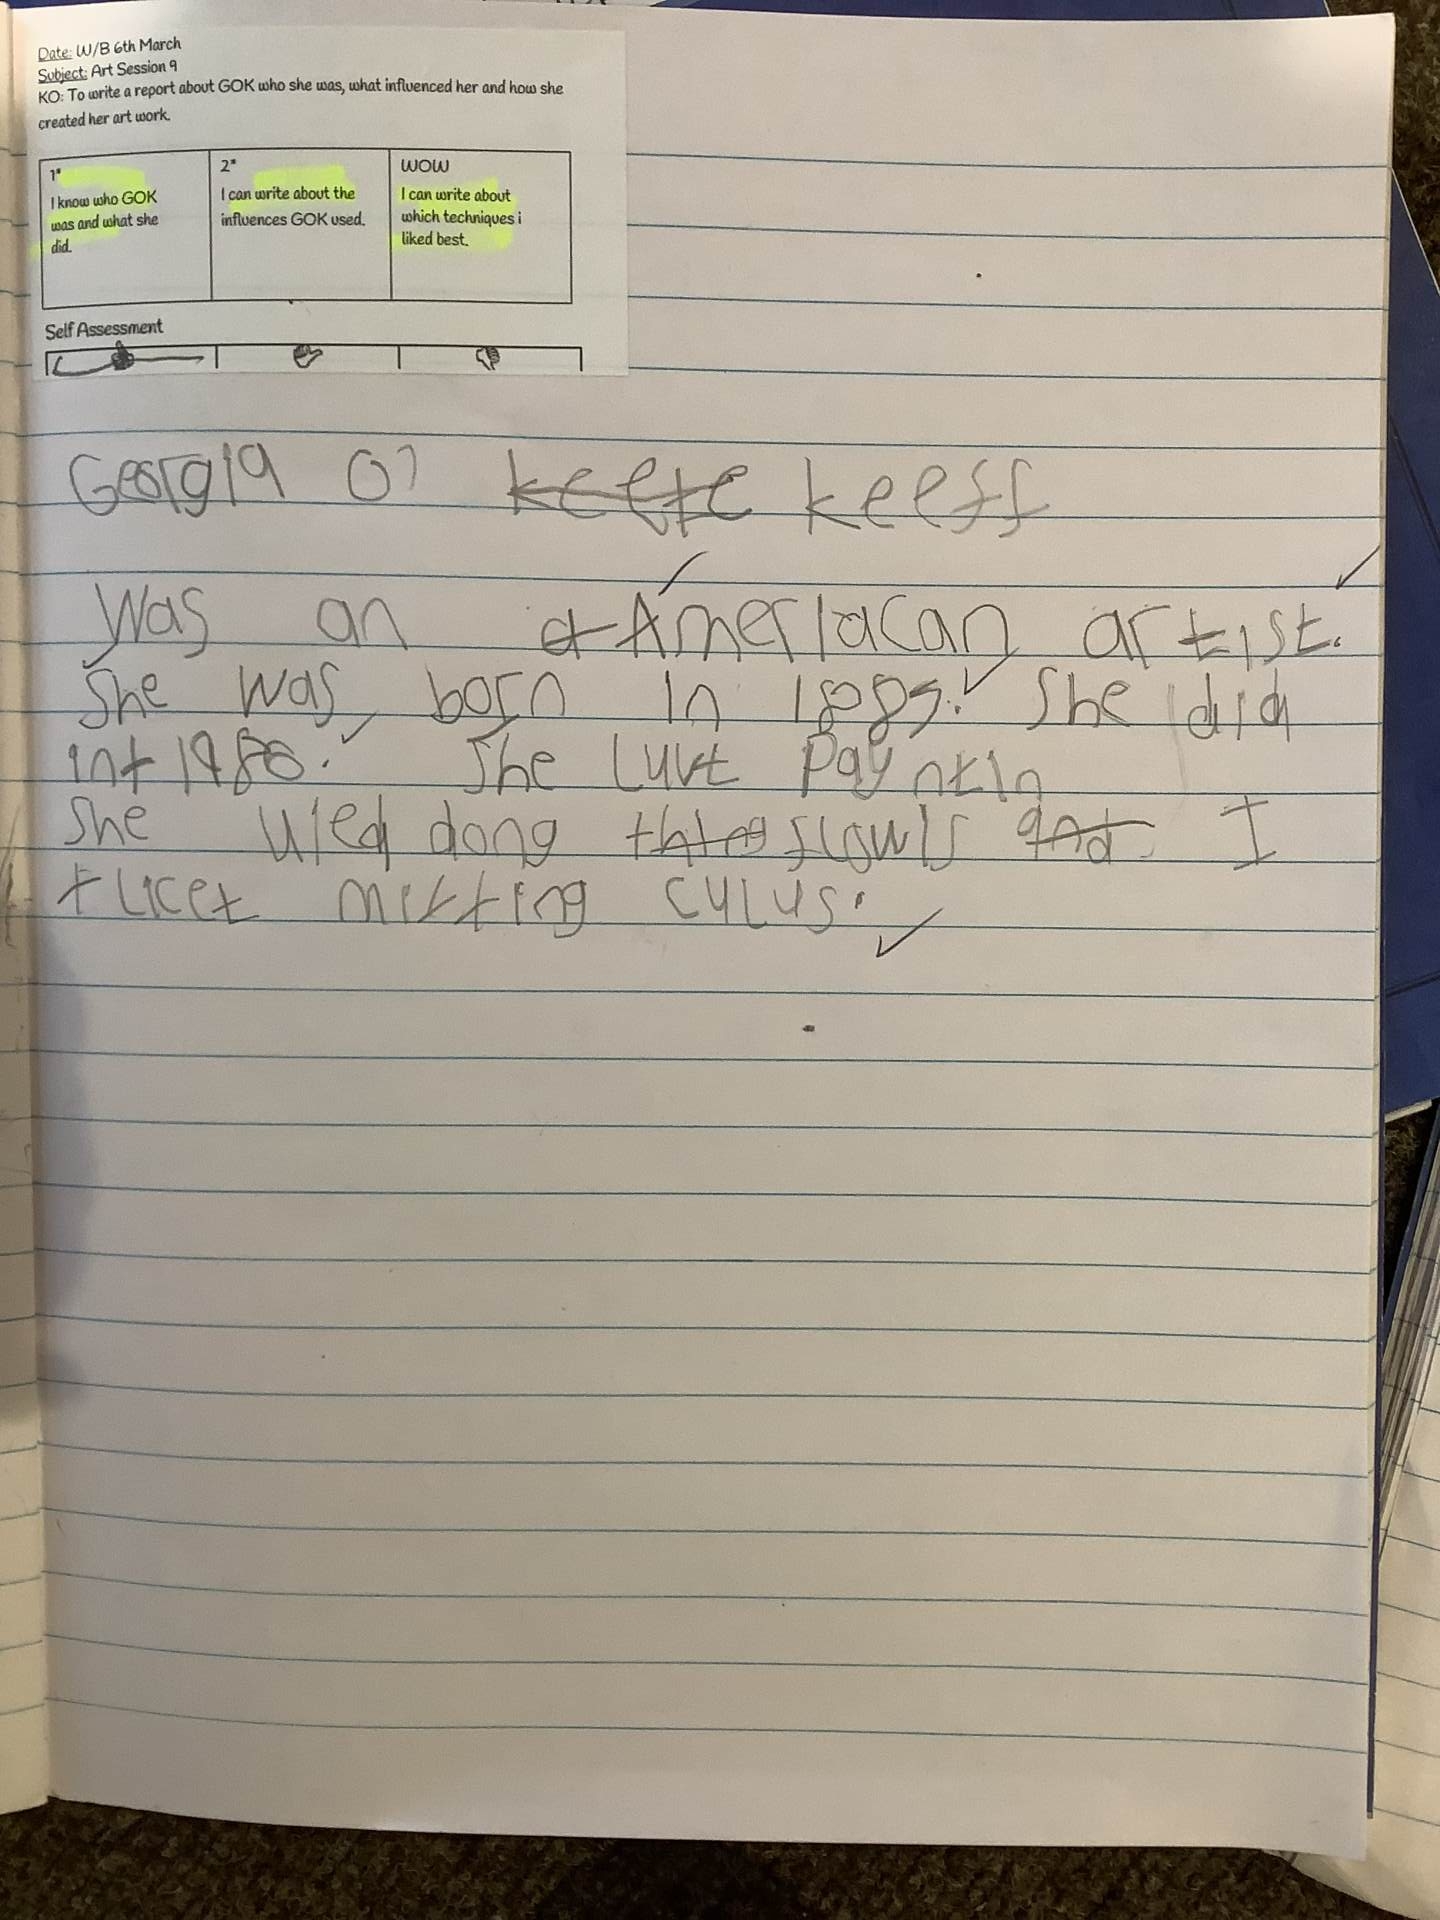 Date: W/B 6th March
Subject: Art Session 9
KO: To write a report about GOK who she was, what influenced her and how she
created her art work.
1*
I know who GOK
was and what she
did.
2*
I can write about the
influences GOK used.
WOW
I can write about
which techniques i
liked best.
Self Assessment
Georgia O' keefe keeff
Was an a Ameriacan artist.
She was born in 1887. She did
int 1986. She luvt payntin
she uled dong thing flowls and I
tlicet mixting culus.